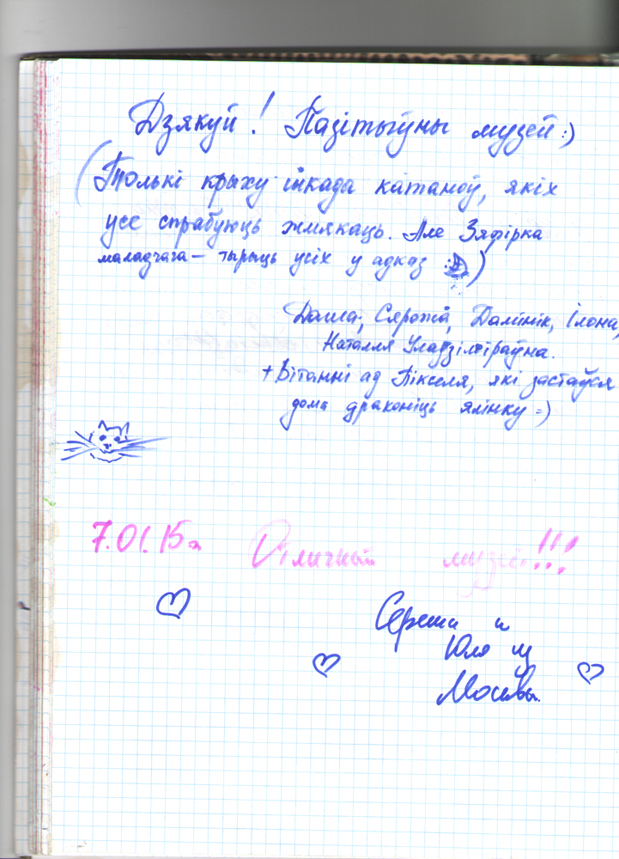 Дзякуй! Пазітыўны музей :)
(Толькі крыху шкада катаноў, якіх
усе спрабуюць жмякаць. Але Зяфірка
маладчага – тырыць усіх у адказ )
Даша, Сярожа, Далінік, Ілона,
Наталля Уладзіміраўна.
+ Вітанні ад Пікселя, які застаўся
дома драконіць ялінку =)
7.01.15г Отличный музей!!!
Сережа и
Юля из
Москвы.